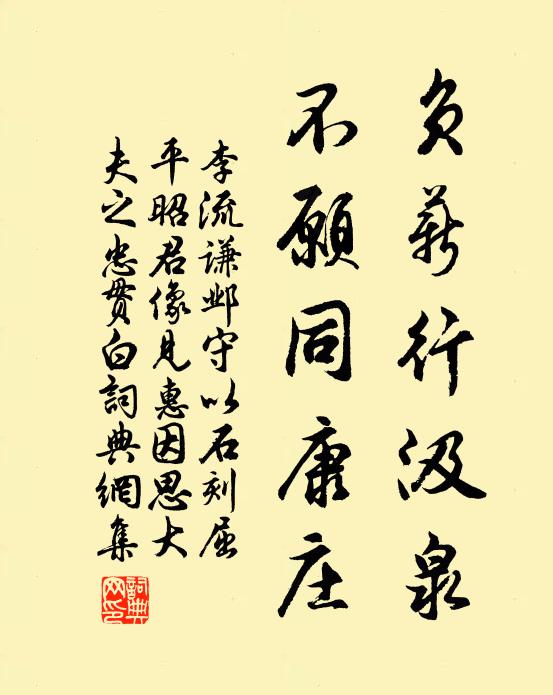 负薪行汲泉
不愿同康庄
李流谦邺守以石刻屈
平昭君像见惠因思大
夫之忠贯白詞典網集
詞典網印